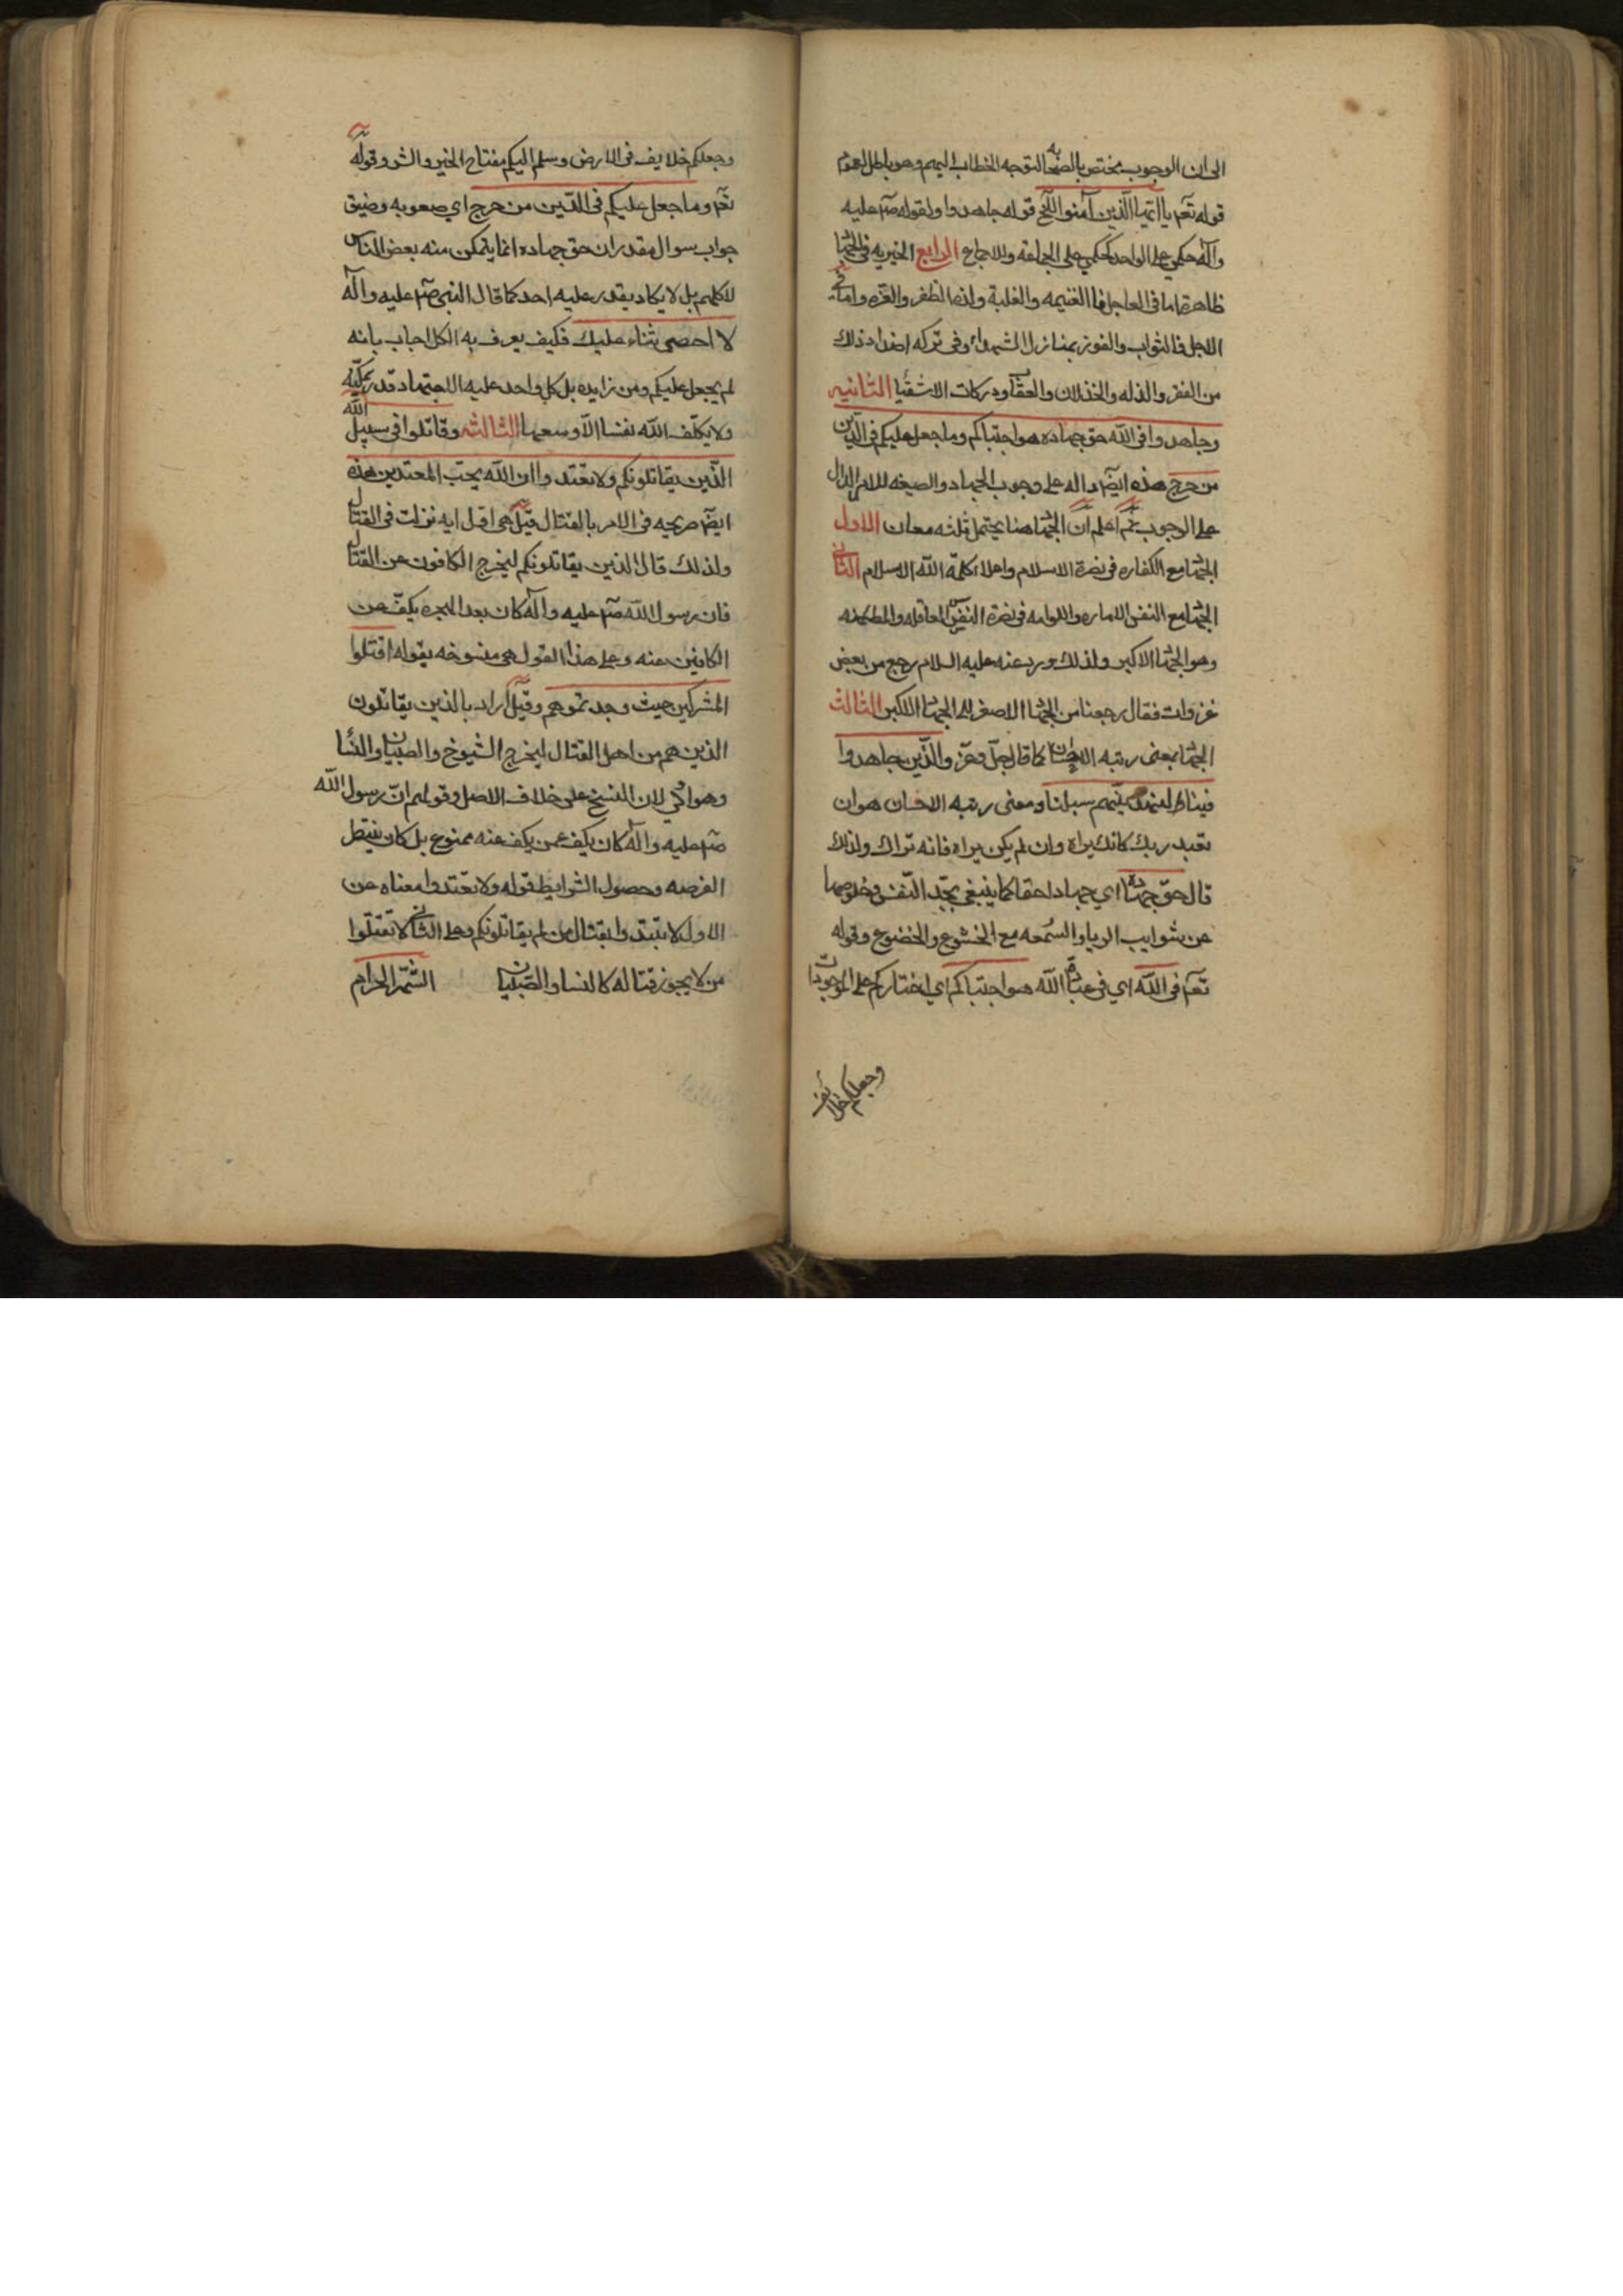 الى ان الوجوب مختص بالصحابه لتوجه الخطاب اليهم وهو باطل لعموم
قوله تعم يا ايها الذين آمنوا الخ قوله جاهدوا ولقوله صم عليه
وآله حكمي على الواحد كحكمي على الجماعة وللاجماع الرابع الخيريه في الجها
ظاهرة اما في العاجل فا الغنيمه والغلبة ولذه الظفر والعزه واما في
الاجل فالثواب والفوز بمنازل الشهداء وفي تركه اضداد ذلك
من الفقر والذله والخذلان والعقا ودركات الاشقيا الثانيه
وجاهدوا في الله حق جهاده هو اجتباكم وما جعل عليكم في الدين
من حرج هذه ايضا داله على وجوب الجهاد والصيغه للامر الدال
على الوجوب ثم اعلم ان الجها هنا يحتمل ثلثه معان الاول
الجها مع الكفاره في نصرة الاسلام واعلا كلمة الله الاسلام الثاني
الجها مع النفس الاماره واللوامه في نصرة النفس العاقله والمطمئنه
وهو الجها الاكبر ولذلك ورد عنه عليه السلام رجع من بعض
غزوات فقال رجعنا من الجها الاصغر الى الجها الاكبر الثالث
الجها بمعنى رتبه الاحسان كما قال جل وعز والذين جاهدوا
فينا لنهدينهم سبلنا ومعنى رتبه الاحسان هو ان
تعبد ربك كانك يراه وان لم يكن يراه فانه تراك ولذلك
قال حق جهاده اي جهادا حقا كما ينبغي بجد النفس وخلوصها
عن شوايب الريا والسمعه مع الخشوع والخضوع وقوله
تعم في الله اي في عبادة الله هو اجتباكم اي اختاركم على الموجودات
وجعلكم خلايف
وجعلكم خلايف في الارض وسلم اليكم مفتاح الخير والشر وقوله
تعم وما جعل عليكم في الدين من حرج اي صعوبه وضيق
جواب سوال مقدر ان حق جهاده انما يتمكن منه بعض الناس
لا كلهم بل لا يكاد يقدر عليه احد كما قال النبي صم عليه وآله
لا احصى ثناء عليك فكيف يعرف به الكل اجاب بانه
لم يجعل عليكم ومن زايده بل كل واحد عليه الاجتهاد قدر تمكنه
ولا يكلف الله نفسا الا وسعها الثالثه وقاتلوا في سبيل الله
الذين يقاتلونكم ولا تعتدوا ان الله يحب المعتدين هذه
ايضا صريحه في الامر بالقتال قيل هي اول ايه نزلت في القتال
ولذلك قال الذين يقاتلونكم ليخرج الكافون عن القتال
فان رسول الله صم عليه وآله كان بعد الهجره يكف عن
الكافين عنه وعلى هذا القول هي منسوخه بقوله اقتلوا
المشركين حيث وجدتموهم وقيل اراد بالذين يقاتلون
الذين هم من اهل القتال ليخرج الشيوخ والصبيان والنسا
وهو اولى لان النسخ على خلاف الاصل وقولهم ان رسول الله
صم عليه وآله كان يكف عمن يكف عنه ممنوع بل كان ينتظر
الفرصه وحصول الشرايط قوله ولا تعتدوا معناه عن
الاول لا تبتدوا بقتال من لم يقاتلونكم وعلى الثاني لا تقتلوا
من لا يجوز قتاله كالنسا والصبيان الشهر الحرام